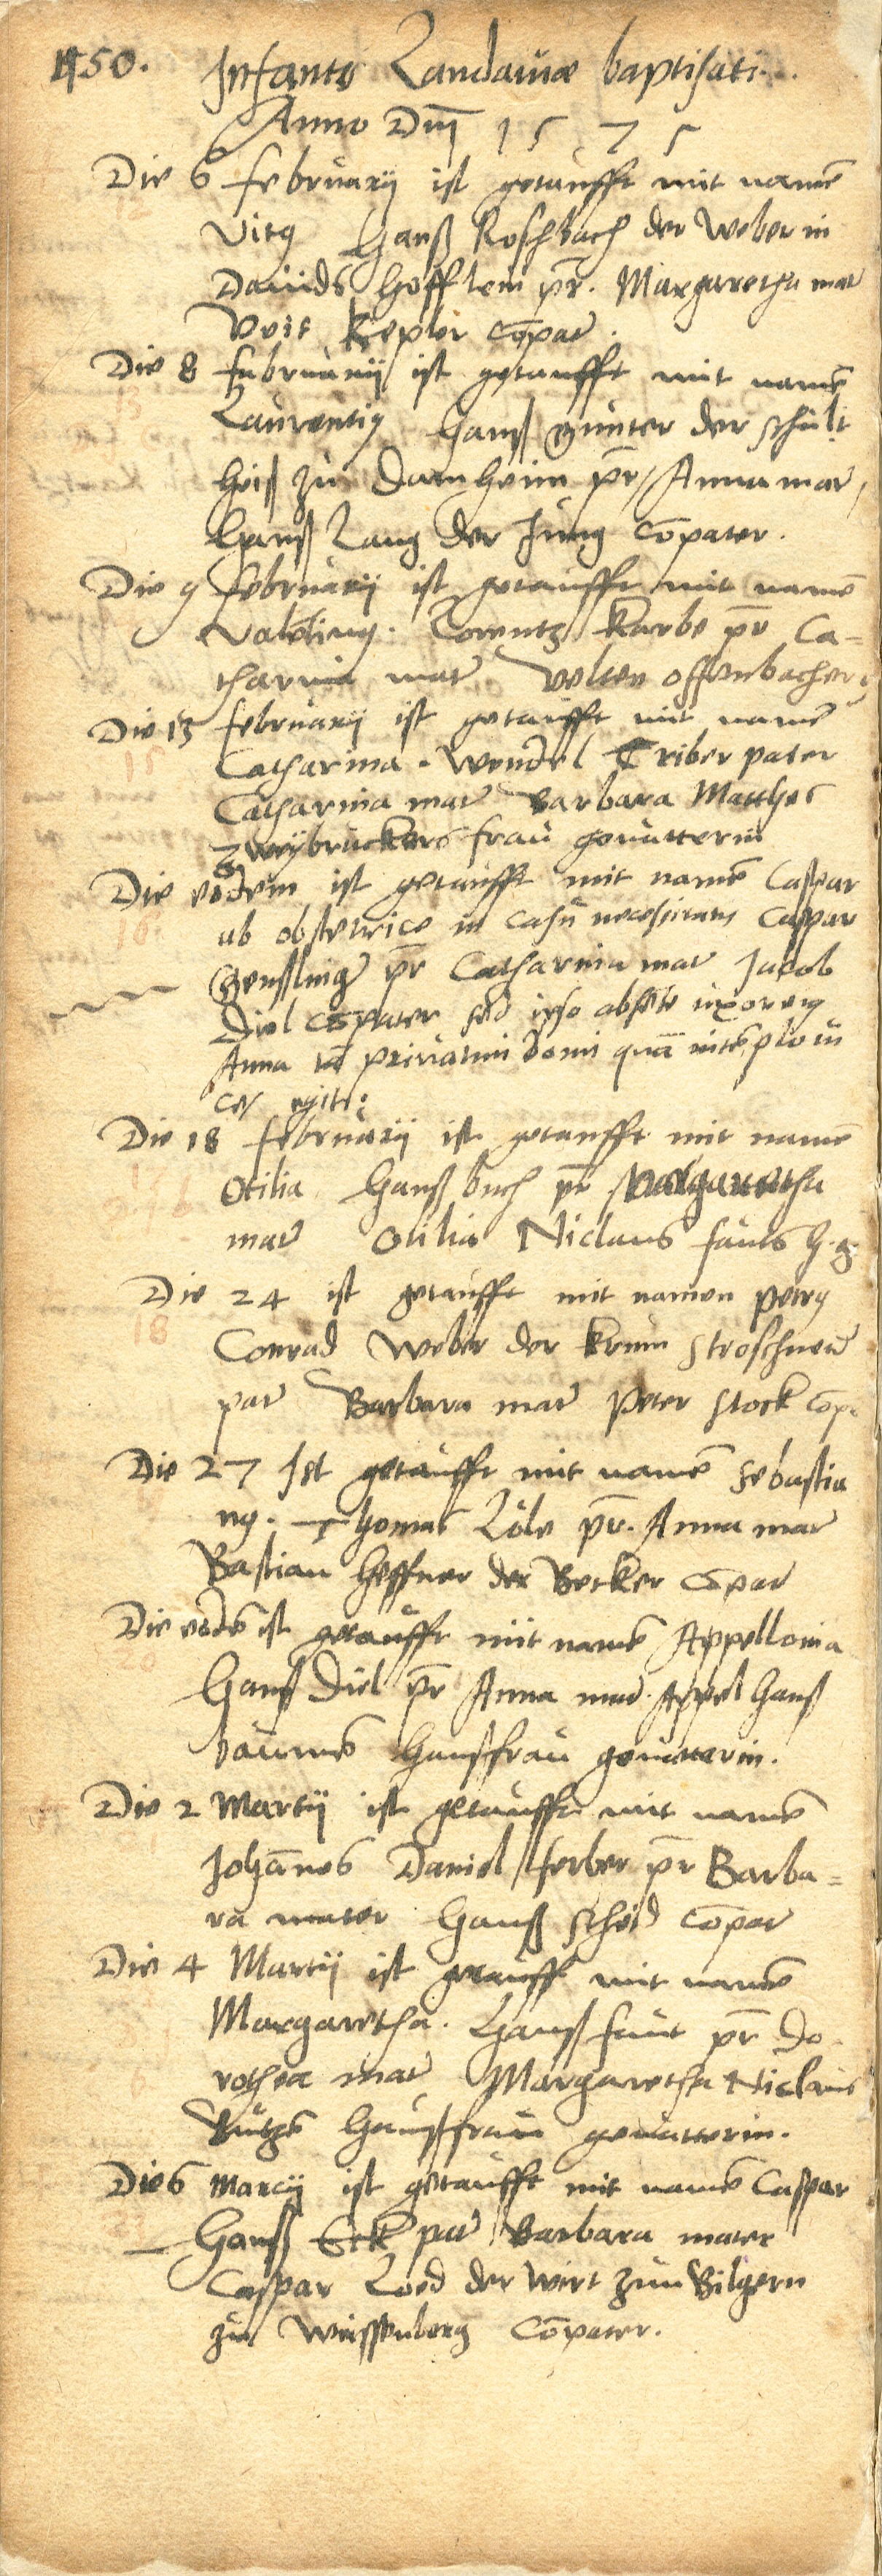 150. Infantes Landauiæ baptisati.
Anno Dnī 1575
Die 6 februarij ist getaufft mit namē
Vitꝯ Hanß Roschbach der Weber in
Dauids hofflein pr̄. Margaretha mat
Veit Kepler cōpat.
Die 8 februarij ist getaufft mit namē
Laurentiꝯ Hanß Gunter der schult
heiß zu Damheim pr̄ Anna mat
Hanß Lang der Jung cōpater.
Die 9 februarij ist getaufft mit namē
Valētinꝯ. Lorentz Karbe pr̄ Ca=
tharina mat Velten Offenbacher
Die 13 februarij ist getaufft mit namē
Catharina. Wendel Triber pater
Catharina mat Barbara Matthes
Zweybruckers frau geuatterin
Die eodem ist getaufft mit namē Caspar
ab obstetrice in casu necessitatis Caspar
Genßling pr̄ Catharina mat Jacob
Diel cōpater sed ipso absēte uxor eiꝯ
Anna tā priuatim domi quā in tēplo

Die 18 februarij ist getaufft mit namē
Otilia Hanß buch pr̄ Margaretha
mat Otilia Niclaus fauts h. g.
Die 24 ist getaufft mit namen petrꝯ
Conrad Weber der krum stroschneid
pat Barbara mat Peter Stock cōp
Die 27 Ist getaufft mit namē Sebastia
nꝯ. Thomas Löle pr̄. Anna mat
Bastian Heffner der Becker cōpat
Die eodē ist getaufft mit namē Appellonia
Hanß Diel pr̄ Anna mat. Appel Hanß
baumes Haußfrau geuatterin.
Die 2 Martij ist getaufft mit namē
Johānes Daniel ferber pr̄ Barba=
ra mater Hanß Scheid cōpat
Die 4 Martij ist getaufft mit namē
Margaretha. Hanß faut pr̄ Do
rothea mat Margaretha Niclaus
Kutzē Haußfrau geuatterin.
Die 6 Marcij ist getaufft mit namē Caspar
Hanß Eck pat Barbara mater
Caspar Loed der Wirt zum Bilgern
zu Weissenberg Cōpater.